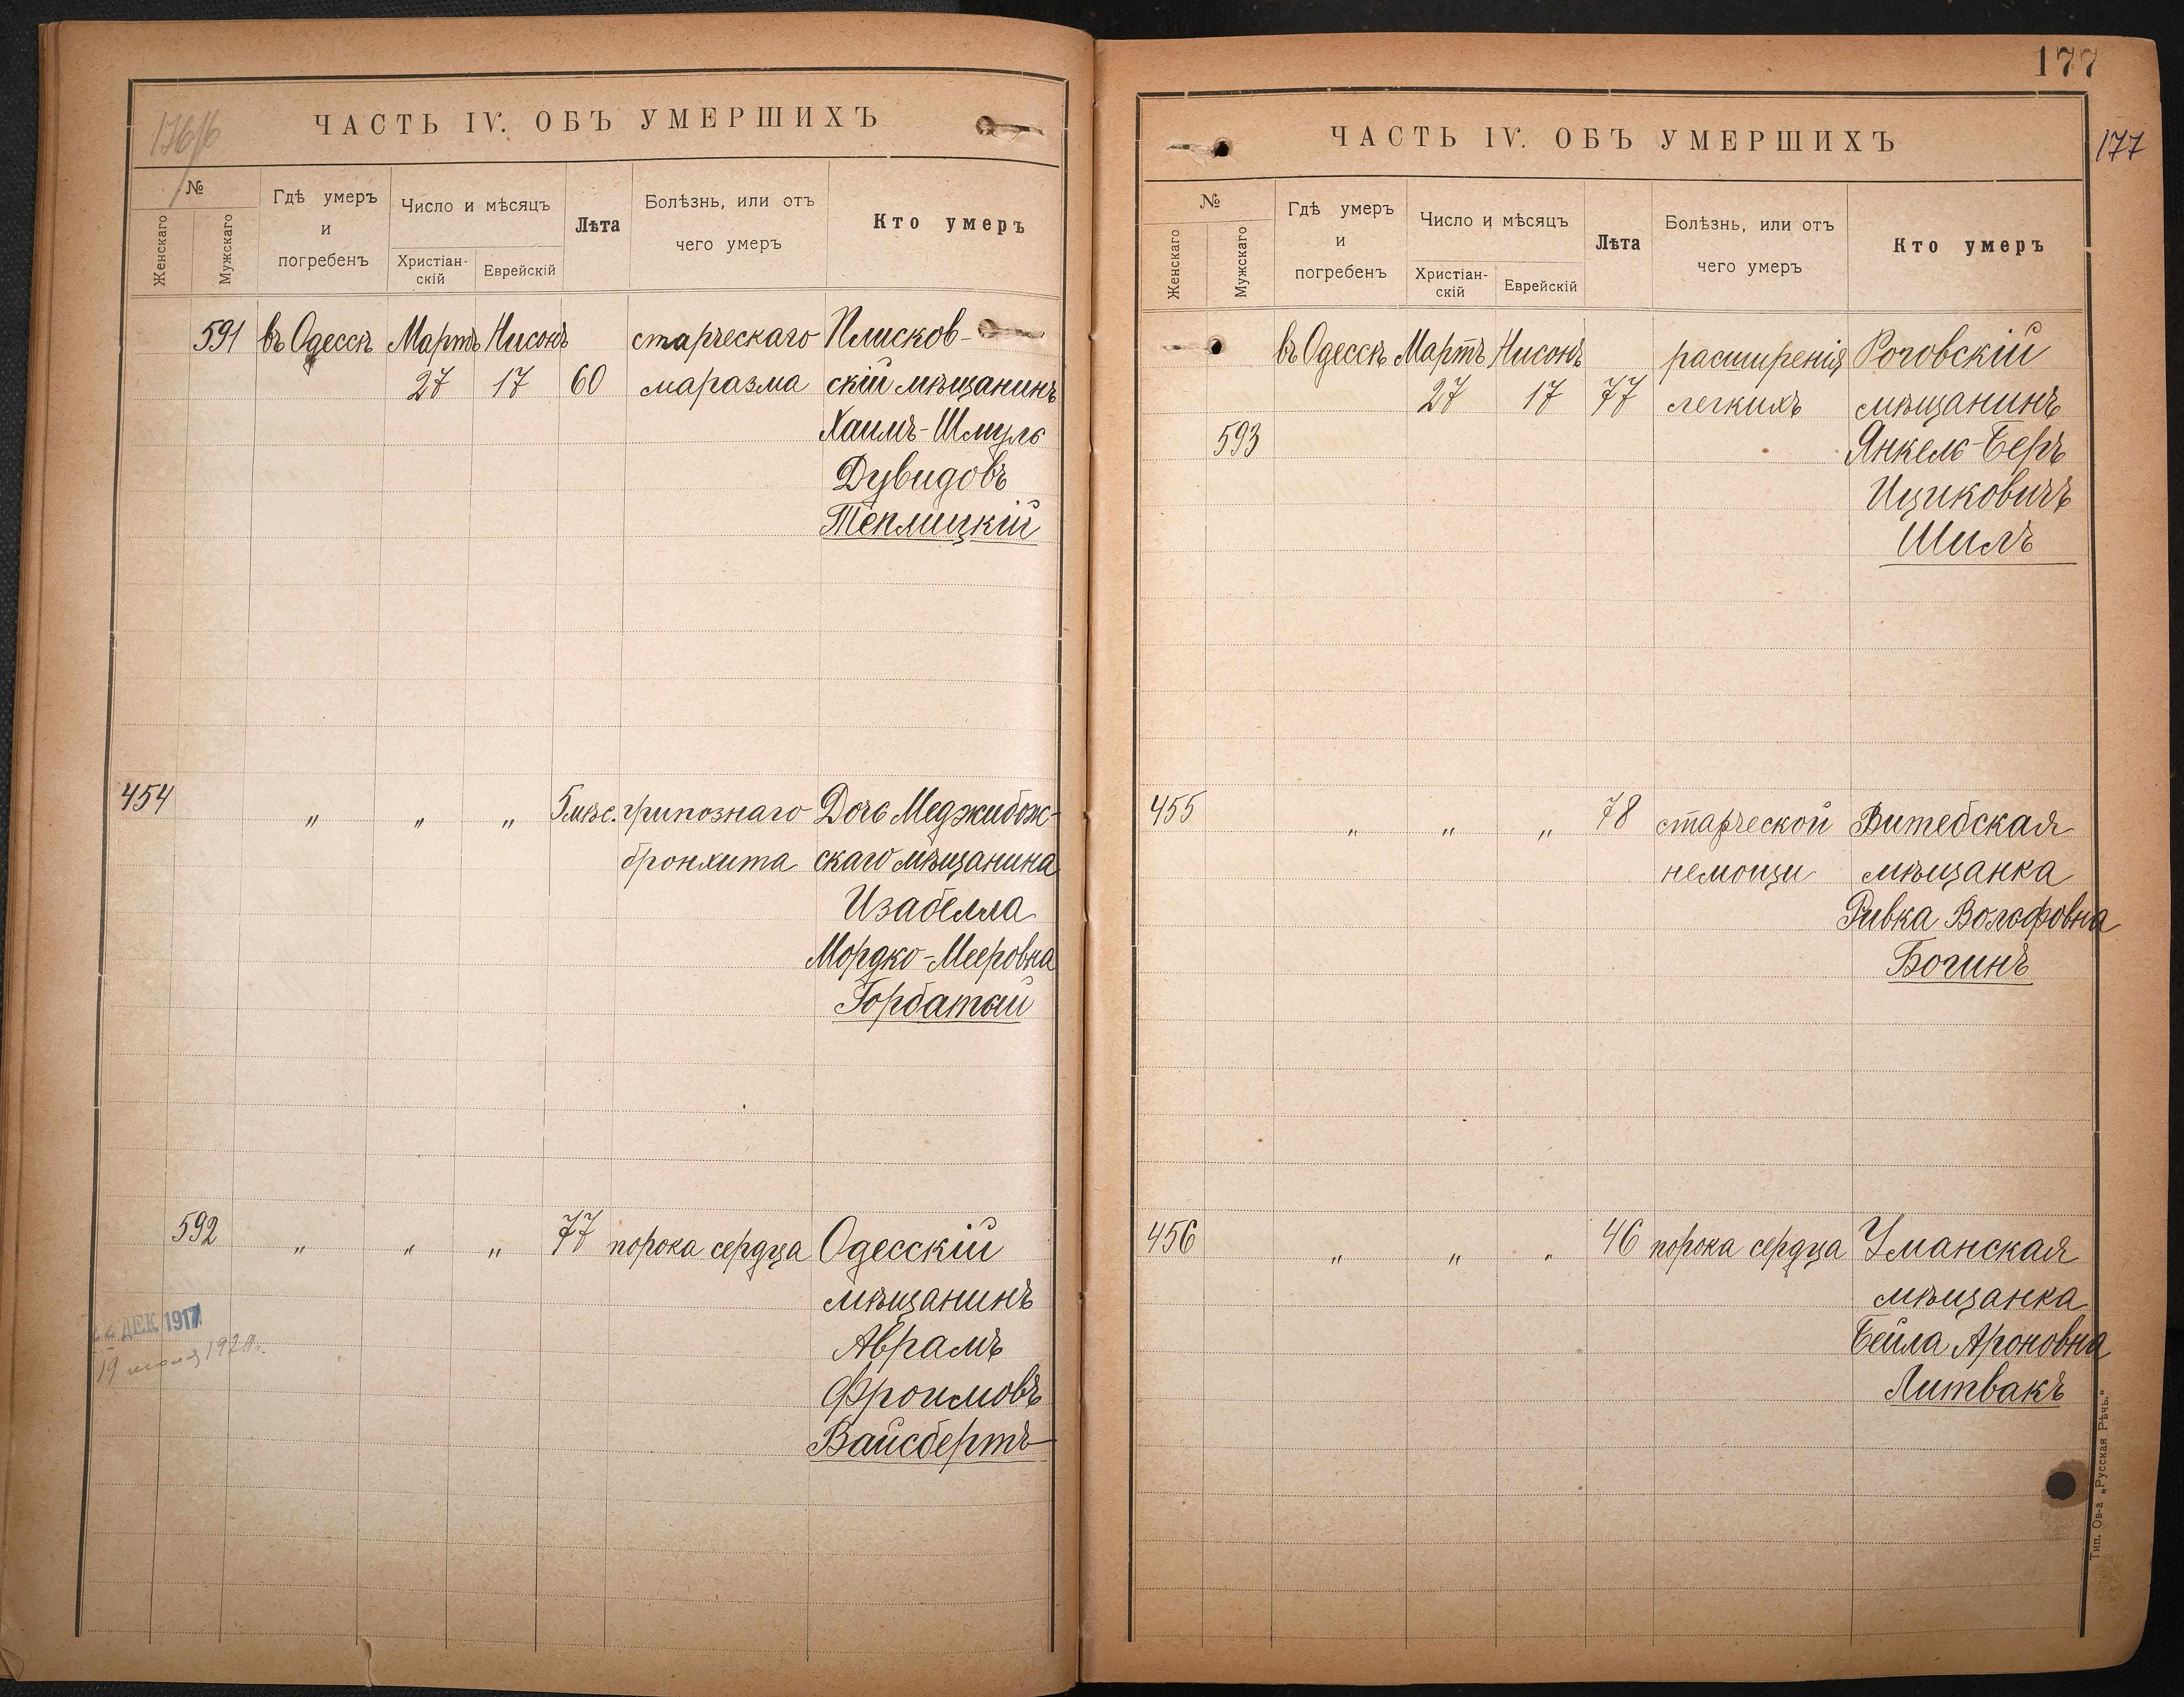 ЧАСТЬ IV. ОБЪ УМЕРШИХЪ
№
Женскаго
Мужскаго
Гдѣ умеръ
и
погребенъ
Число и мѣсяцъ
Христіан-
скій
Еврейскій
Лѣта
Болѣзнь, или отъ
чего умеръ
Кто умеръ
591 въ Одессѣ Мартъ Нисонъ старческаго Плисков-
27 17 60 маразма скій мѣщанинъ
Хаимъ-Шмуль
Дувидовъ
Теплицкій
454 " " " 5 мѣс. грипознаго Дочь Меджибож-
бронхита скаго мѣщанина
Изабелла
Мордко-Мееровна
Горбатый
592 " " " 77 порока сердца Одесскій
мѣщанинъ
Аврамъ
Фроимовъ
Вайсбертъ
22 ДЕК 1917
177
ЧАСТЬ IV. ОБЪ УМЕРШИХЪ
177
№
Женскаго
Мужскаго
Гдѣ умеръ
и
погребенъ
Число и мѣсяцъ
Христіан-
скій
Еврейскій
Лѣта
Болѣзнь, или отъ
чего умеръ
Кто умеръ
въ Одессѣ Мартъ Нисонъ расширенія Роговскій
27 17 77 легкихъ мѣщанинъ
593 Янкель-Беръ
Ициковичъ
Шилъ
455 " " " 78 старческой Витебская
немощи мѣщанка
Ривка Вольфовна
Богинъ
456 " " " 46 порока сердца Уманская
мѣщанка
Бейла Ароновна
Литвакъ
Тип. Ов-а „Русская Рѣчь."